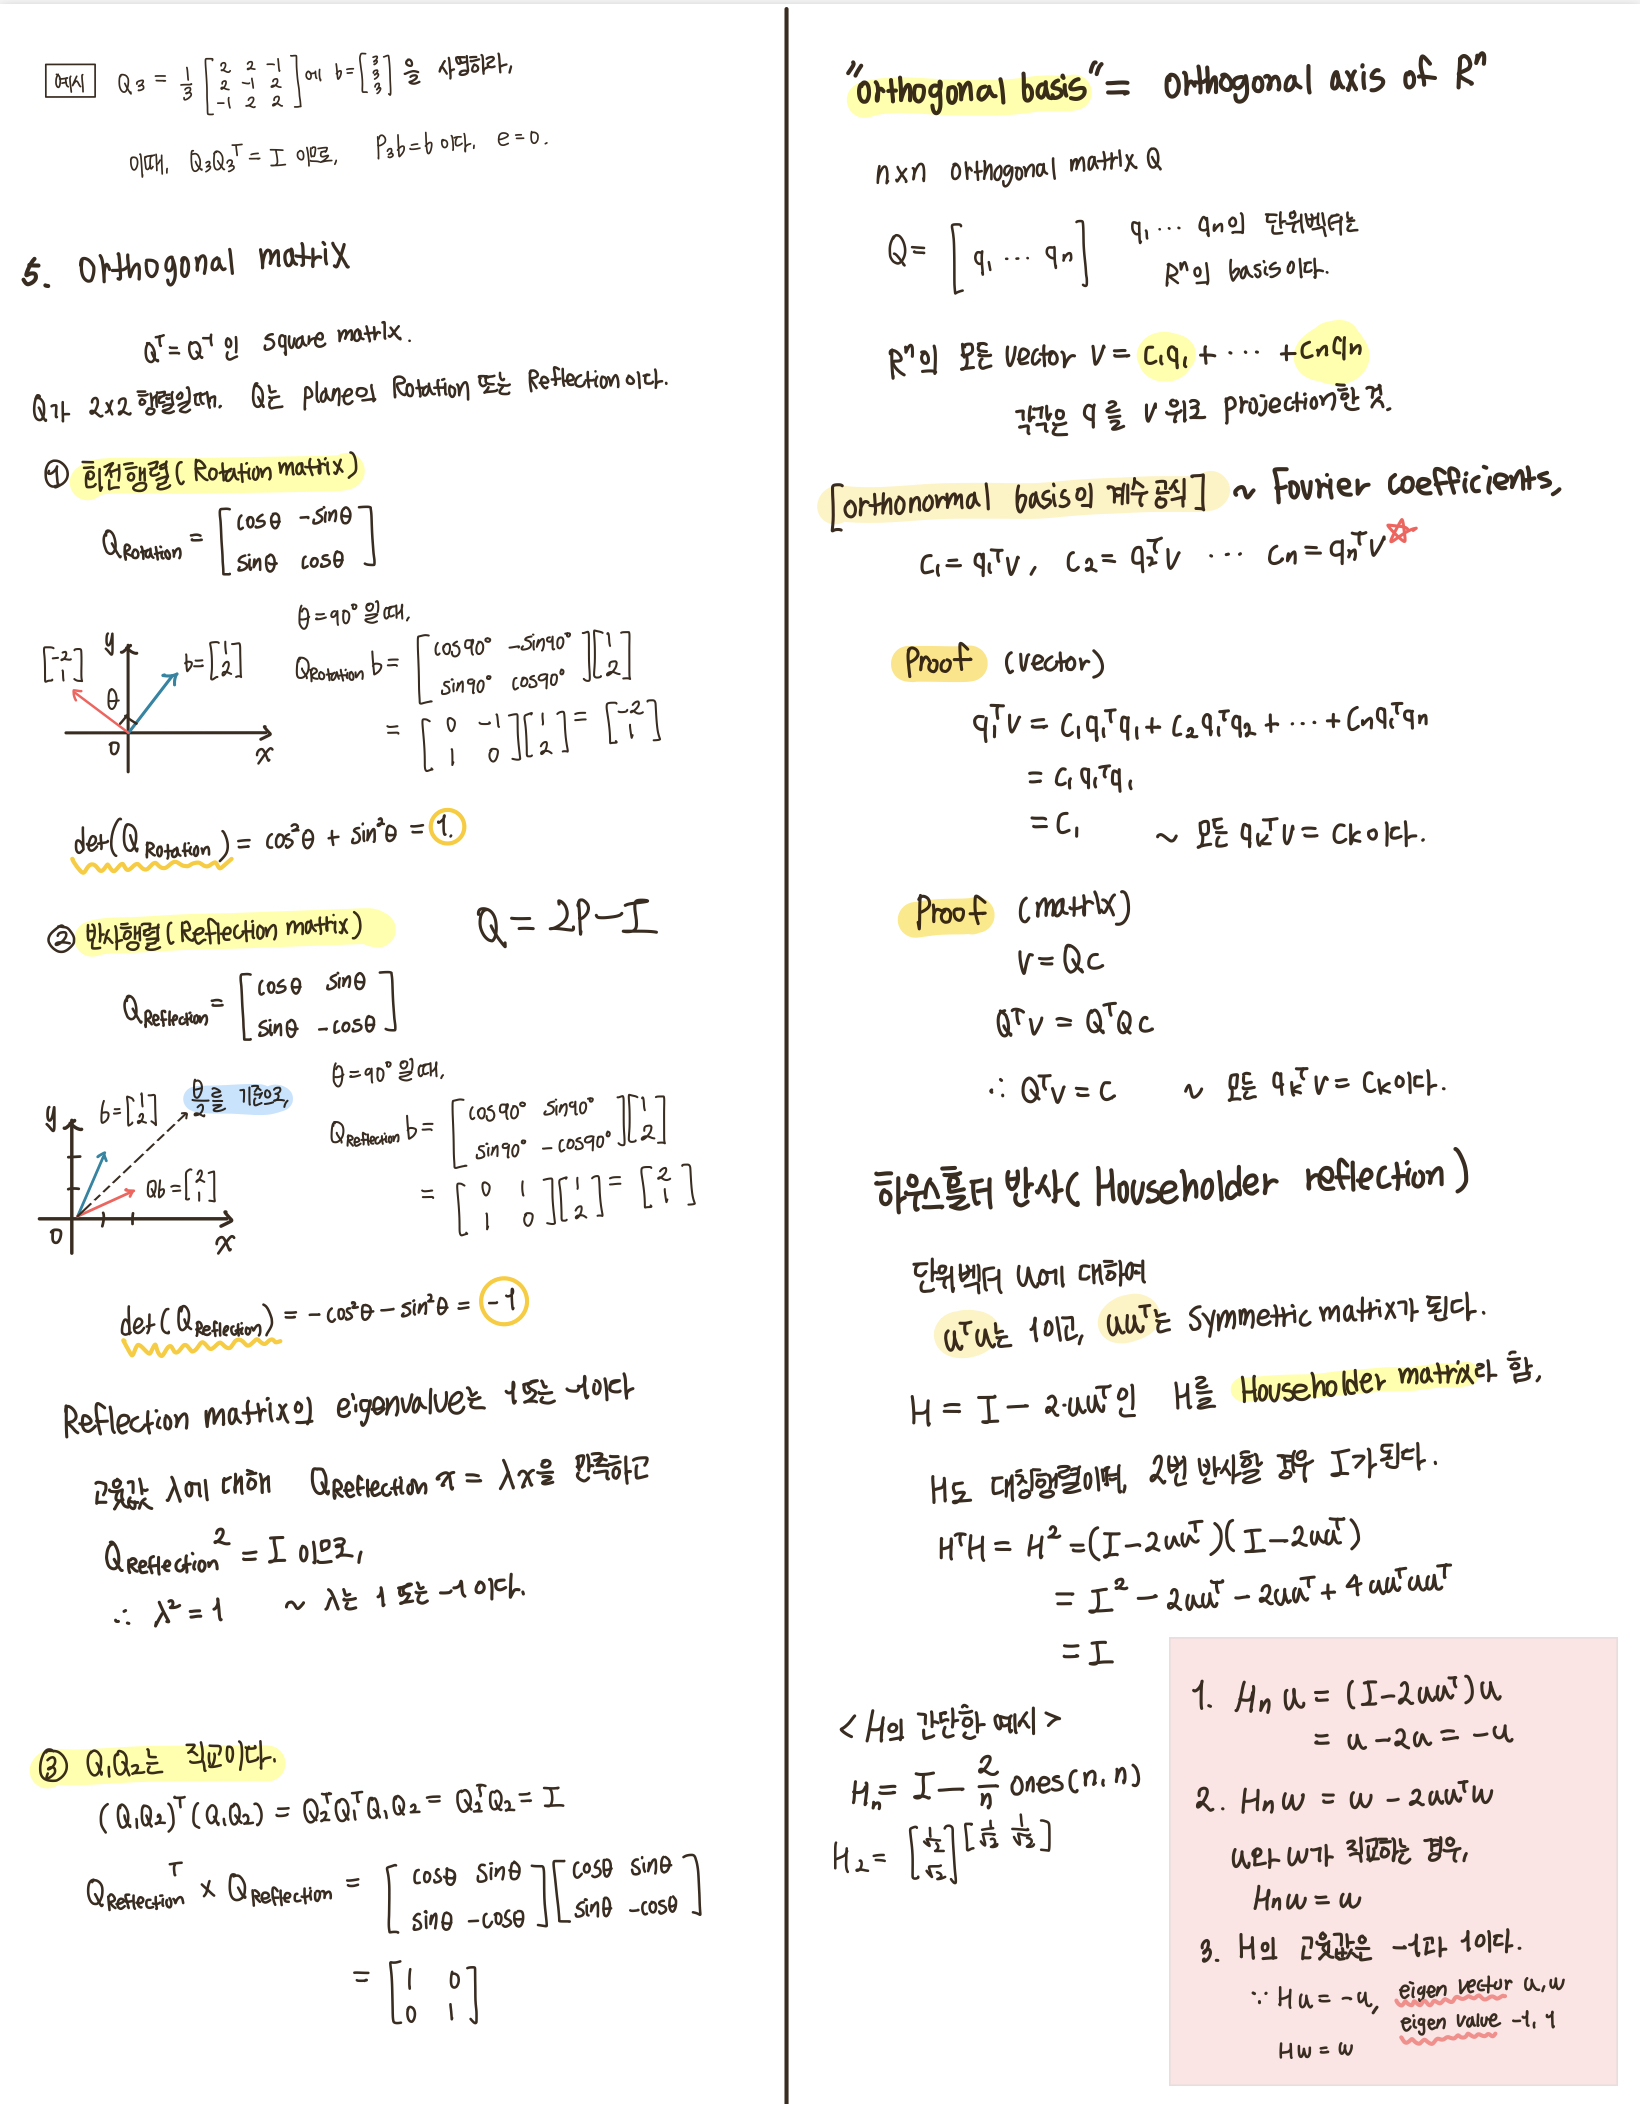 예시 Q₃ = 1/3 [2 2 -1; 2 -1 2; -1 2 2] 에 b = [3; 3; 3] 을 사영하라,
이때, Q₃Q₃ᵀ = I 이므로, P₃b = b 이다. e = 0.
5. Orthogonal matrix
Qᵀ = Q⁻¹ 인 square matrix.
Q가 2x2 행렬일때. Q는 plane의 Rotation 또는 Reflection이다.
① 회전행렬 (Rotation matrix)
Q Rotation = [cosθ -sinθ; sinθ cosθ]
θ = 90° 일때,
[-2; 1] y b = [1; 2] θ 0 x
Q Rotation b = [cos90° -sin90°; sin90° cos90°] [1; 2]
= [0 -1; 1 0] [1; 2] = [-2; 1]
det(Q Rotation) = cos²θ + sin²θ = 1.
② 반사행렬 (Reflection matrix) Q = 2P - I
Q Reflection = [cosθ sinθ; sinθ -cosθ]
θ = 90° 일때,
y b = [1; 2] θ/2를 기준으로, Qb = [2; 1] 0 x
Q Reflection b = [cos90° sin90°; sin90° -cos90°] [1; 2]
= [0 1; 1 0] [1; 2] = [2; 1]
det(Q Reflection) = -cos²θ - sin²θ = -1
Reflection matrix의 eigenvalue는 1또는 -1이다
고윳값 λ에 대해 Q Reflection x = λx을 만족하고
Q Reflection² = I 이므로,
∴ λ² = 1 ~ λ는 1 또는 -1 이다.
③ Q₁Q₂는 직교이다.
(Q₁Q₂)ᵀ(Q₁Q₂) = Q₂ᵀQ₁ᵀQ₁Q₂ = Q₂ᵀQ₂ = I
Q Reflectionᵀ x Q Reflection = [cosθ sinθ; sinθ -cosθ] [cosθ sinθ; sinθ -cosθ]
= [1 0; 0 1]
"orthogonal basis" = orthogonal axis of Rⁿ
nxn orthogonal matrix Q
Q = [q₁ ⋯ qn] q₁ ⋯ qn의 단위벡터는
Rⁿ의 basis이다.
Rⁿ의 모든 vector v = c₁q₁ + ⋯ + cnqn
각각은 q를 v위로 projection한 것.
[orthonormal basis의 계수 공식] ~ Fourier coefficients,
c₁ = q₁ᵀv, c₂ = q₂ᵀv ⋯ cn = qnᵀv ☆
Proof (vector)
q₁ᵀv = c₁q₁ᵀq₁ + c₂q₁ᵀq₂ + ⋯ + cnq₁ᵀqn
= c₁q₁ᵀq₁
= c₁ ~ 모든 qkᵀv = ck이다.
Proof (matrix)
v = Qc
Qᵀv = QᵀQc
∴ Qᵀv = c ~ 모든 qkᵀv = ck이다.
하우스홀더 반사 (Householder reflection)
단위벡터 u에 대하여
uᵀu는 1이고, uuᵀ는 symmetric matrix가 된다.
H = I - 2·uuᵀ인 H를 Householder matrix라 함,
H도 대칭행렬이며, 2번 반사할 경우 I가된다.
HᵀH = H² = (I-2uuᵀ)(I-2uuᵀ)
= I² - 2uuᵀ - 2uuᵀ + 4uuᵀuuᵀ
= I
<H의 간단한 예시>
Hn = I - 2/n ones(n, n)
H₂ = [1/√2; √2] [1/√2 1/√2]
1. Hn u = (I-2uuᵀ)u
= u - 2u = -u
2. Hn w = w - 2uuᵀw
u와 w가 직교하는 경우,
Hn w = w
3. H의 고윳값은 -1과 1이다.
∵ Hu = -u, eigen vector u, w
eigen value -1, 1
Hw = w